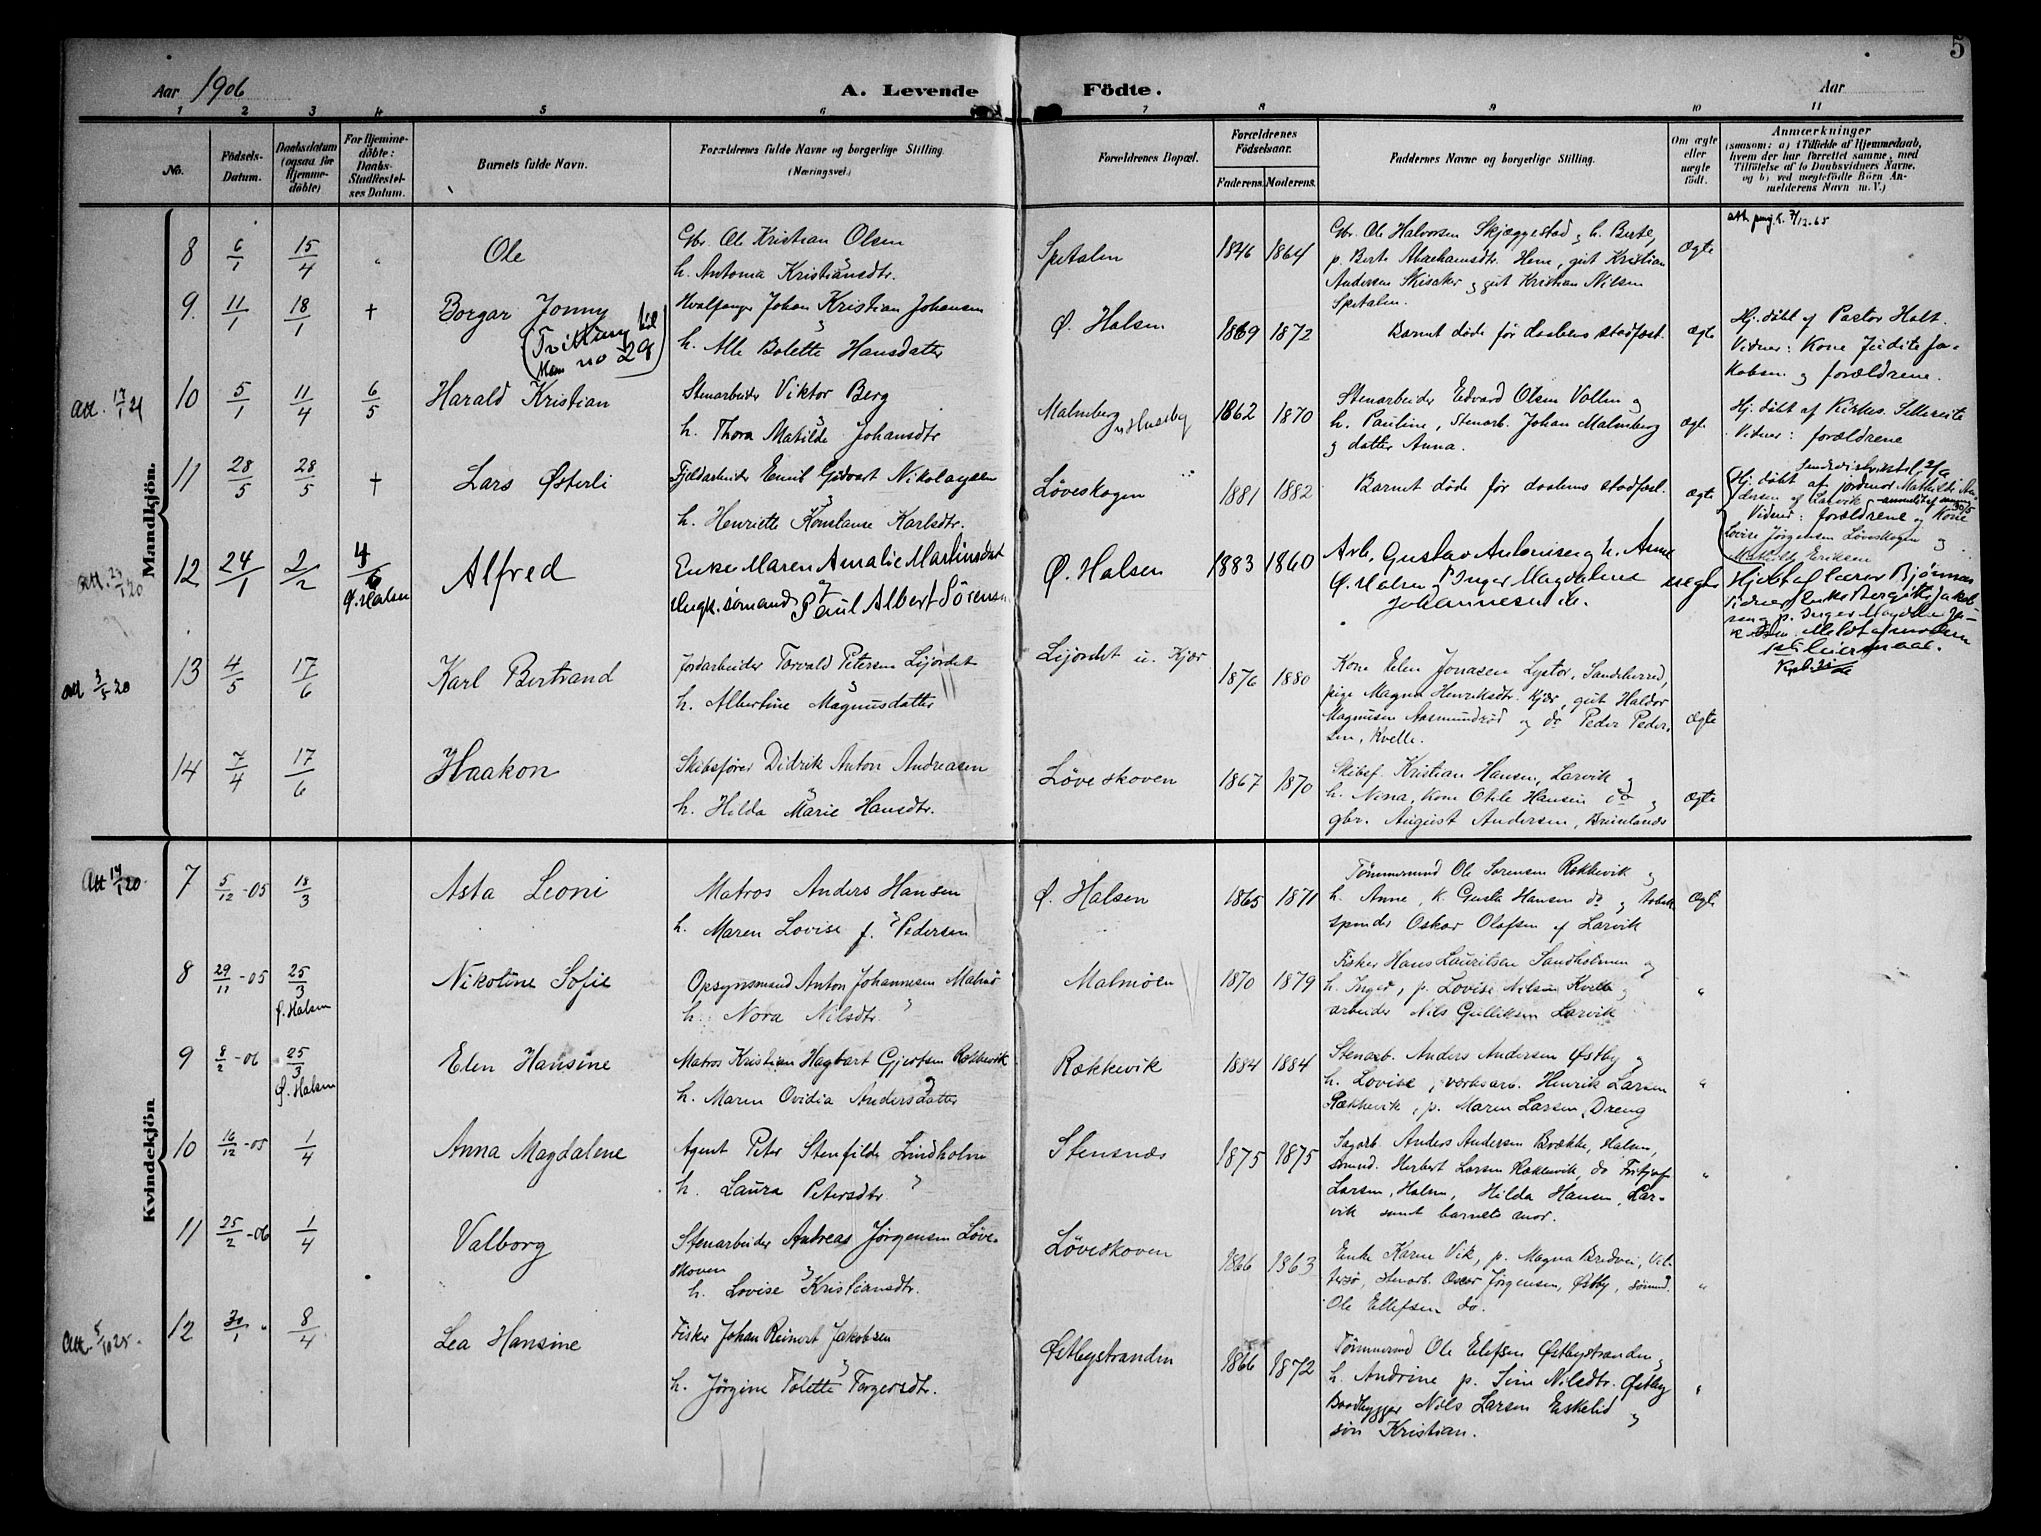 5
Aar 1906
A. Levende
Födte.
Aar
1 2 3 4 5 6 7 8 9 10 11
No.
Födsels-Datum.
Daabsdatum (ogsaa for Hjemme-döbte)
For Hjemme-döbte: Daabs-Stadfæstel-ses Datum.
Barnets fulde Navn.
Forældrenes fulde Navne og borgerlige Stilling. (Næringsvei.)
Forældrenes Bopæl.
Forældrenes Födselsaar.
Faderens. Moderens.
Faddernes Navne og borgerlige Stilling.
Om ægte eller uægte födt.
Anmærkninger
(saasom: a) i Tilfælde af Hjemmedaab, hvem der har forrettet samme, med Tilföielse af to Daabsvidners Navne. og b) ved uægtefödte Börn Anmelderens Navn m. V.)
Mandkjön.
8 6/1 15/4 " Ole
Gbr. Ole Kristian Olsen
h. Antonia Kristiansdtr.
Spetalen 1846 1864
Gbr. Ole Halvorsen Skjæggestad og h. Berte,
p. Berte Abrahamsdtr. Hem, gut Kristian
Andersen Skisaker og gut Kristian Nilsen
Spetalen.
Ægte
7/12-65
9. 11/1 18/1 + Borgar Jonny
(Tvilling til
no 29)
Hvalfanger Johan Kristian Johansen
h. Alle Bolette Hansdatter
Ø. Halsen 1869 1872
Barnet døde før daabens stadfæst.
ægte
Hj. døbt af Pastor Holt.
Vidner: Kone Judite Ja-
kobsen og forældrene.
Att. 17/1 21
10 5/1 11/4 6/5 Harald Kristian
Stenarbeider Viktor Berg
h. Thora Matilde Johansdtr
Malmberg 1862 1870
Stenarbeider Edvard Olsen Vollen og
h. Pauline, Stenarb. Johan Malmberg
og datter Anna.
ægte
Hj. døbt af Kirkes.
Vidner: forældrene
11 28/5 28/5 + Lars Østerli
Fjeldarbeider Emil Godvart Nikolaysen
h. Henriette Konstanse Karlsdtr.
Løveskogen 1881 1882
Barnet døde før daabens stadfæst.
ægte
Hj. døbt af jordmor Mathilde An-
dersen af Larvik
Vidner: forældrene og Kone
Lovise Jörgensen Løveskogen og
Mathilde Eriksen
12 24/1 2/2 4/6 Ø. Halsen Alfred
Enke Maren Amalie Martinsdat
Ungk. sømand Paul Albert Sörensen
Ø. Halsen 1883 1860
Arb. Gustav Antonisen og h. Anne
Ø. Halsen p. Inger Magdalene
Johannesen
uægte
Hj. døbt af Lærer Bjørnnes
13 4/5 17/6 Karl Bertrand
Att 3/5 20
Jordarbeider Torvald Petersen Lijordet
h. Albertine Magnusdatter
Lijordet u. Kjær 1876 1880
Kone Elen Jonasen Lystor, Sandeherred,
pige Magna Henriksdtr. Kjær, gut Haldor
Magnusen Aasmundrød og do Peder Peder-
sen, Kvelle.
ægte
14 7/4 17/6 Haakon
Skibsfører Didrik Anton Andreasen
h. Hilda Marie Hansdtr.
Løveskoven 1867 1870
Skibsf. Kristian Hansen, Larvik og
h. Nina, Kone Otile Hansen do og
gbr. August Andersen, Brunlanæs
Ægte
Kvindekjön
Att 14/1 20.
7 5/12-05 18/3 Asta Leoni
Matros Anders Hansen
h. Maren Lovise f. Pedersen
Ø. Halsen 1865 1871
Tømmermand Ole Sørensen Rækkevik og
h. Anne, k. Gusta Hansen do og
spinder Oskar Olafsen af Larvik
Ægte
8 29/11-05 25/3 Ø. Halsen Nikoline Sofie
Opsynsmand Anton Johannesen Malmø
h. Nora Nilsdtr.
Malmöen 1870 1879
Fisker Hans Lauritsen Sandholmen og
h. Inger, p. Lovise Nilsen Kvelle og
arbeider Nils Gulliksen Larvik
"
9 8/2-06 25/3 Ø. Halsen Elen Hansine
Matros Kristian Hagbart Gjertsen Rækkevik
h. Maren Ovidia Andersdatter
Rækkevik 1884 1884
Stenarb. Anders Andersen Østby og
h. Lovise, verksarb. Henrik Larsen
Rækkevik, p. Maren Larsen, Dreng
"
10 16/12-05 1/4 Anna Magdalene
Agent Peter Stenfilde Lindholm
h. Laura Petersdtr
Stensnæs 1875 1875
Sagarb. Anders Andersen Brække, Halsen,
sömd. Herbert Larsen Rækkevik, do Fritjof
Larsen, Halsen, Hilda Hansen, Lar-
vik samt barnets mor.
"
11 25/2-06 1/4 Valborg
Stenarbeider Andreas Jørgensen Løve-
skoven
h. Lovise Kristiansdtr.
Løveskoven 1866 1863
Enke Karen Vik, p. Magna Bredvei, Vil-
tersø, stenarb. Oscar Jörgensen, Østby, sømd.
Ole Ellefsen do.
"
Att. 5/10 25.
12 30/1 " 8/4 Lea Hansine
Fisker Johan Reinert Jakobsen
h. Jörgine Tolette Torgersdtr.
Østbystranden 1866 1872
Tømmermd Ole Elefsen Østbystranden og
h. Andrine p. Sine Nilsdtr. Østby
Baadbygger Nils Larsen Eskelid og
søn Kristian.
"